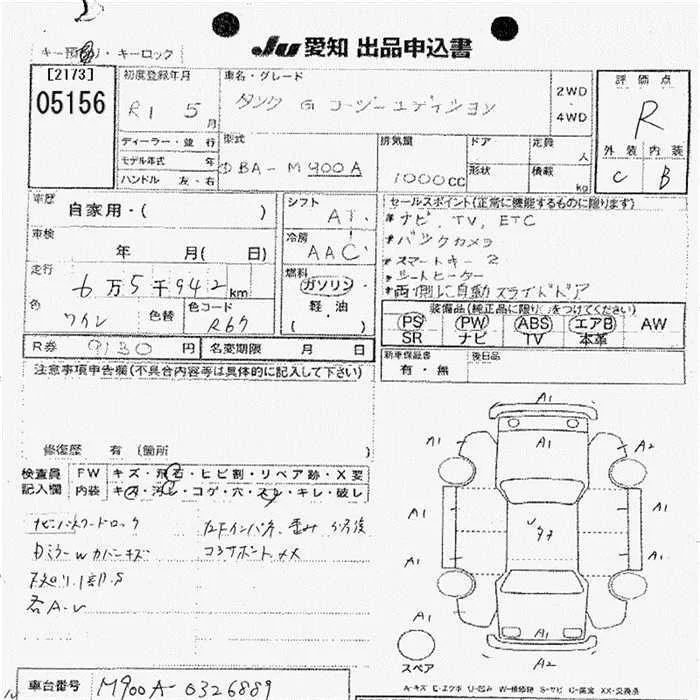 キー預り・キーロック
Ju 愛知 出品申込書
[2173]
05156
初度登録年月
R1 5月
車名・グレード
タンク G コージーエディション
2WD
・
4WD
評価点
R
外装 内装
C B
ディーラー・並行
モデル年式 年
ハンドル 左・右
型式
DBA-M900A
排気量
1000cc
ドア
形状
定員 人
積載 kg
車歴
自家用・( )
車検
年 月( 日)
走行
6万5千942km
色
ワイン
色替
色コード
R67
シフト
AT
冷房
AAC
燃料
ガソリン
・
軽油
( )
セールスポイント(正常に機能するものに限ります)
ナビ, TV, ETC
バックカメラ
スマートキー2
シートヒーター
両側自動スライドドア
装備品(純正品に限り○をつけてください)
PS PW ABS エアB AW
SR ナビ TV 本革
新車保証書
有・無
後日品
R券 9130円
名変期限 月 日
注意事項申告欄(不具合内容等は具体的に記入して下さい)
修復歴 有(箇所 )
検査員
記入欄
FW キズ・飛石・ヒビ割・リペア跡・X要
内装 キズ・汚レ・コゲ・穴・スレ・キレ・破レ
ナビパスワードロック
各A・U
A1
A1
A1
A1
A2
A1
A1
A1
A1
A1
A1
A1
A2
スペア
A-キズ E-エクボ U-凹み W-補修跡 S-サビ C-腐食 XX-交換済
車台番号 M900A-0326889